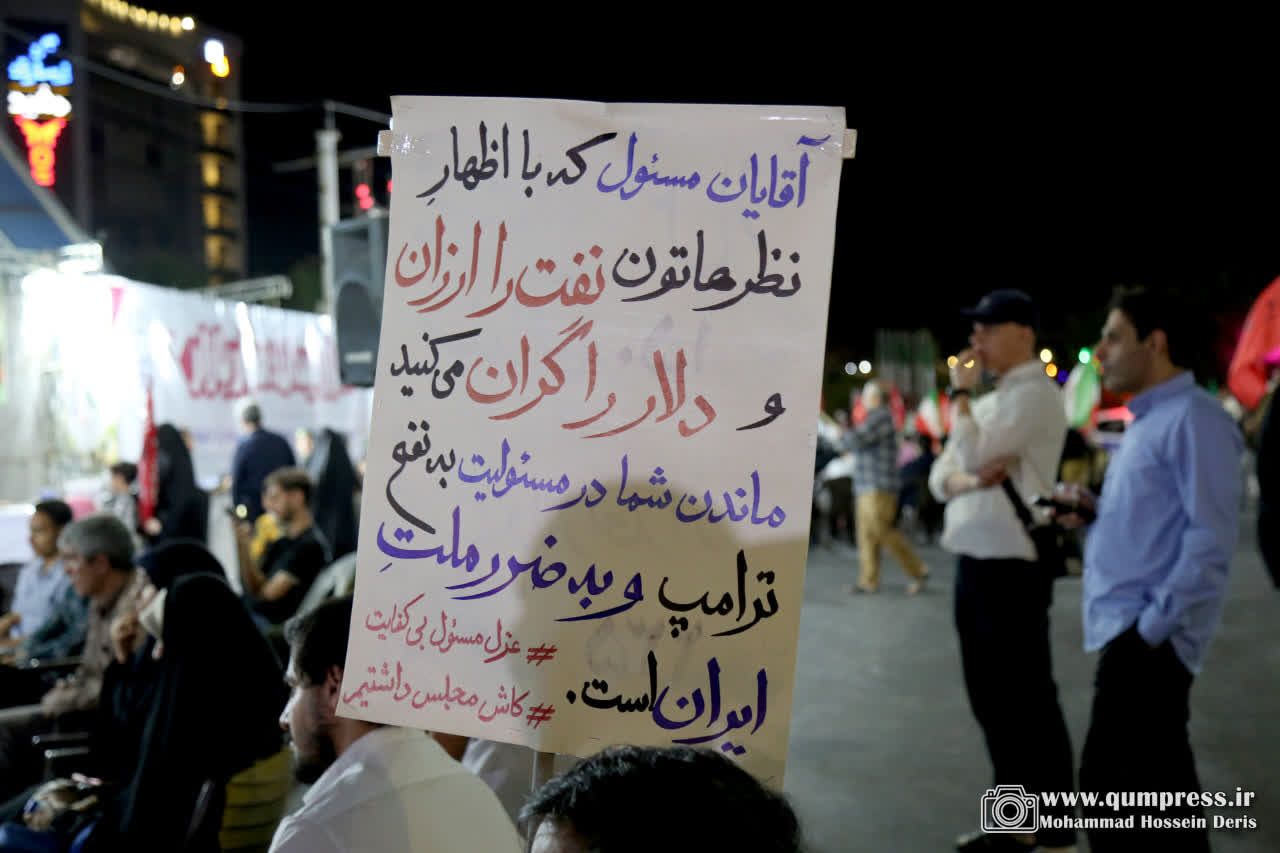 آقایان مسئول که با اظهارِ
نظرهاتون نفت را ارزان
و دلار را گران می‌کنید
ماندن شما در مسئولیت به نفع
ترامپ و به ضرر ملتِ
ایران است.
#عزل مسئول بی کفایت
#کاش مجلس داشتیم
www.qumpress.ir
Mohammad Hossein Deris